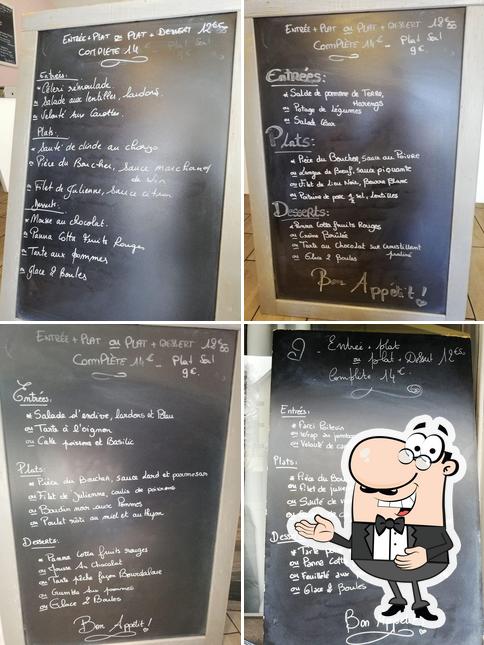 ENTRÉE + PLAT ou PLAT + DESSERT 12€50
COMPLETE 14€ - Plat Seul
Entrées:
* Céleri rémoulade
ou Salade aux lentilles, lardons.
ou Velouté aux Carottes.
Plats:
* Sauté de dinde au chorizo
ou Pièce du Boucher, sauce marchand
de vin
ou Filet de Julienne, sauce citron
Desserts:
* Mousse au chocolat.
ou Panna Cotta Fruits Rouges
ou Tarte aux pommes
ou Glace 2 Boules
ENTRÉE + PLAT ou PLAT + DESSERT 12€50
COMPLÈTE 14€ - Plat Seul
9€.
Entrées:
* Salade de pomme de Terre,
Harengs
ou Potage de légumes
ou Salade César
Plats:
* Pièce du Boucher, sauce au Poivre
ou Langue de Boeuf, sauce piquante
ou Filet de Lieu Noir, Beurre Blanc
ou Poitrine de porc 1/2 sel, lentilles
Desserts:
* Panna Cotta fruits Rouges
ou Crème Brûlée
ou Tarte au Chocolat sur croustillant
praliné
ou Glace 2 Boules
Bon Appétit!
ENTRÉE + PLAT ou PLAT + DESSERT 12€50
COMPLÈTE 14€ - Plat Seul
9€.
Entrées:
* Salade d'endive, lardons et Bleu
ou Tarte à l'oignon
ou Cake poivrons et Basilic
Plats:
* Pièce du Boucher, sauce lard et parmesan
ou Filet de Julienne, coulis de poivrons
ou Boudin noir aux Pommes
ou Poulet rôti au miel et au thym
Desserts:
* Panna Cotta fruits rouges
ou Mousse Au Chocolat
ou Tarte pêche façon Bourdaloue
ou Crumble aux pommes
ou Glace 2 Boules
Bon Appétit!
Entrée + plat
ou plat + Dessert 12€50
Complète 14€
Entrées:
* Farci Poitevin
ou Wrap au
ou Velouté de
Plats:
* Pièce du
ou Filet de
ou Sauté de
* Tarte
ou Panna Cotta
ou Feuilleté aux
ou Glace 2 Boules
Bon